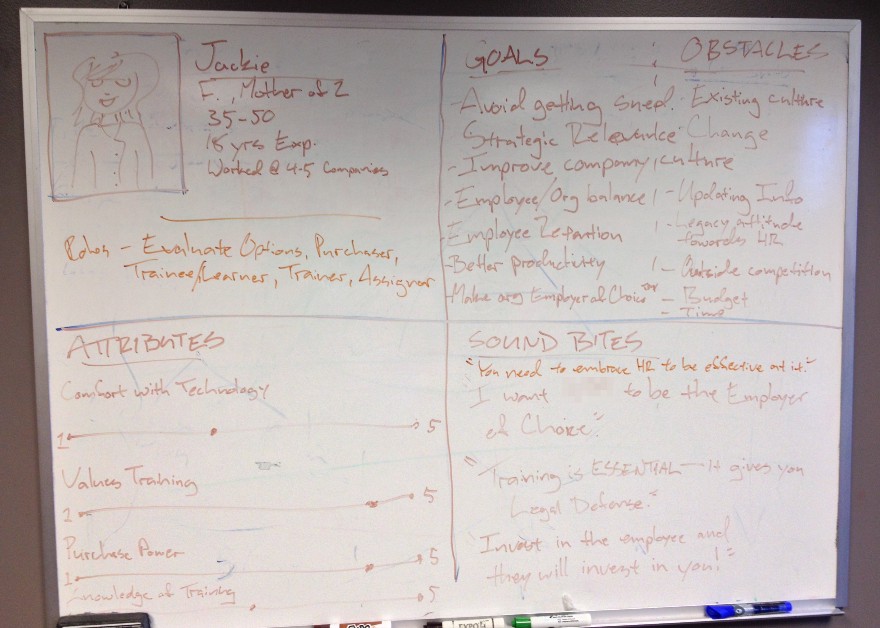 Jackie
F., Mother of 2
35-50
18 yrs Exp.
Worked @ 4-5 Companies
Roles - Evaluate Options, Purchaser,
Trainee/Learner, Trainer, Assigner
GOALS
- Avoid getting sued.
Strategic Relevance
- Improve company culture
- Employee/Org balance
- Employee Retention
- Better productivity
- Make org Employer of Choice
OBSTACLES
- Existing culture
Change
- Updating Info
- Legacy attitude
towards HR
- Outside competition
- Budget
- Time
ATTRIBUTES
Comfort with Technology
1 5
Values Training
1 5
Purchase Power
1 5
Knowledge of Training
5
SOUND BITES
"You need to embrace HR to be effective at it."
I want to be the Employer
of Choice."
"Training is ESSENTIAL - It gives you
Legal Defense."
Invest in the employee and
they will invest in you!"
EXPO